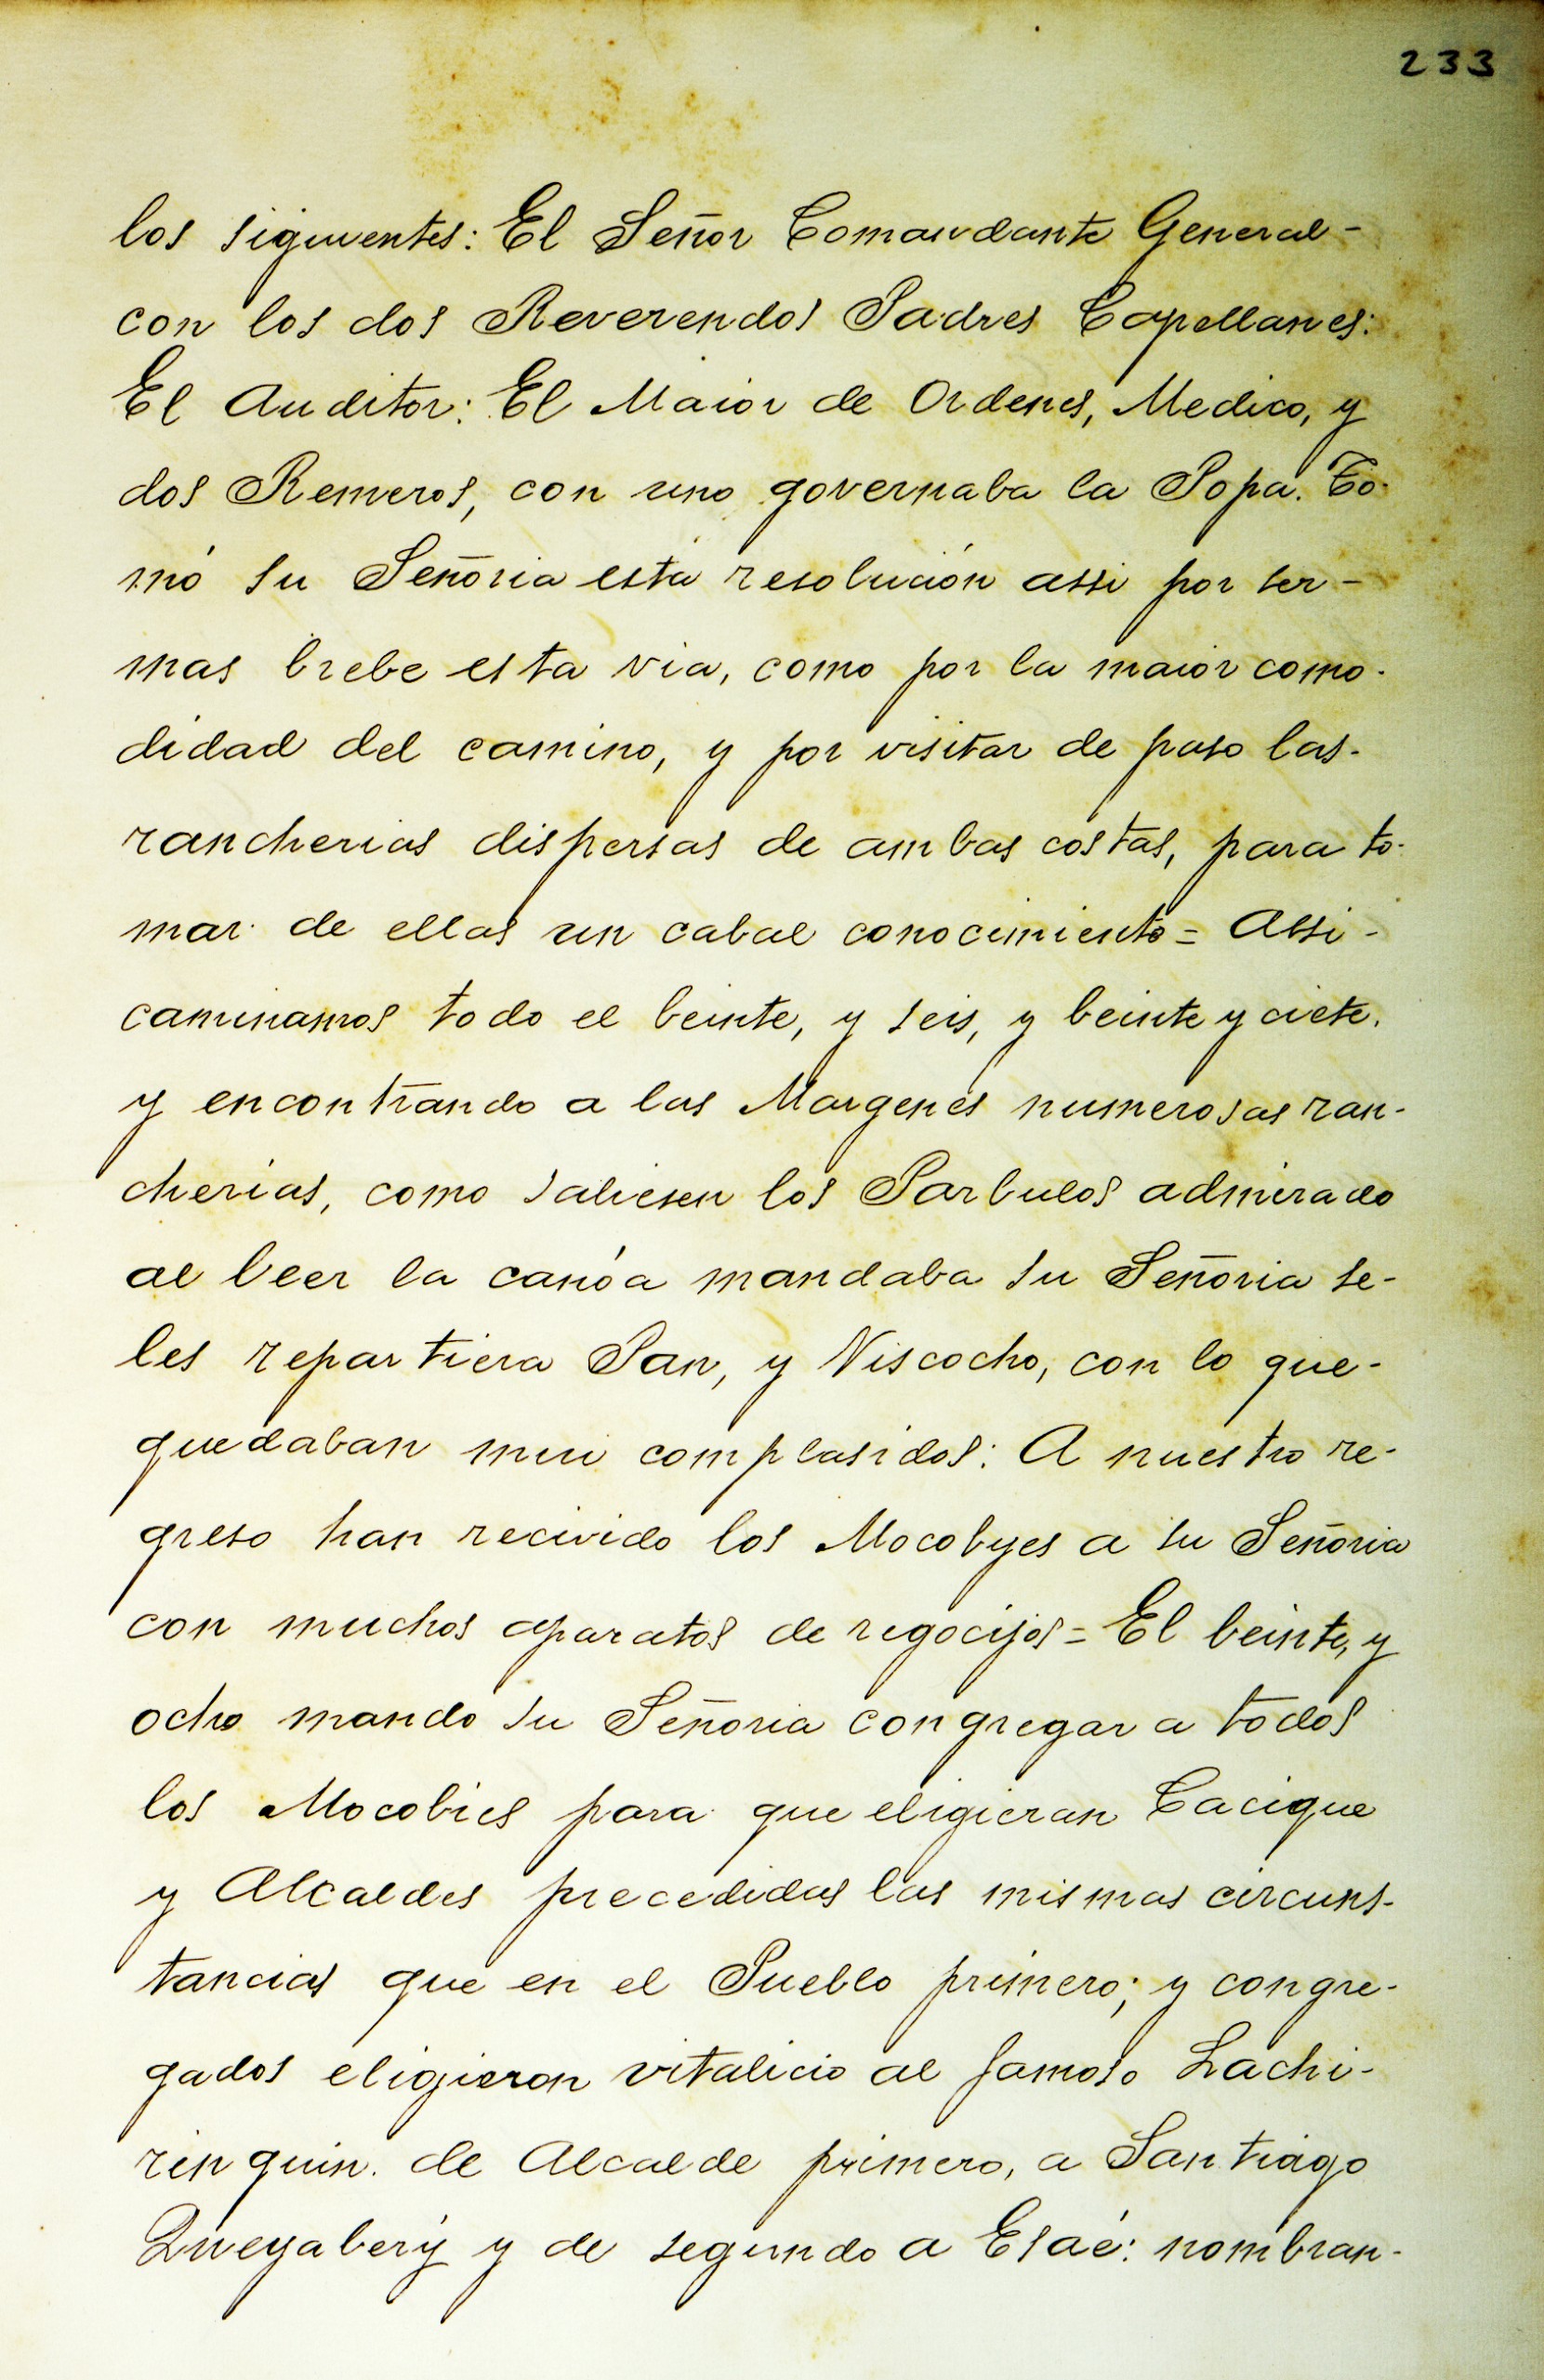 233
los siguientes: El Señor Comandante General-
con los dos Reverendos Padres Capellanes:
El Auditor: El Maior de Ordenes, Medico, y
dos Remeros, con uno governaba la Popa. To-
mó su Señoria esta resolución assi por ser-
mas brebe esta via, como por la maior como-
didad del camino, y por visitar de paso las-
rancherias dispersas de ambas costas, para to-
mar de ellas un cabal conocimiento = Assi-
caminamos todo el beinte, y seis, y beinte y ciete.
y encontrando a las Margenes numerosas ran-
cherias, como saliesen los Parbulos admirado
al beer la canóa mandaba su Señoria se-
les repartiera Pan, y Viscocho, con lo que-
quedaban mui complasidos: A nuestro re-
greso han recivido los Mocobyes a su Señoria
con muchos aparatos de regocijos = El beinte, y
ocho mando su Señoria congregar a todos
los Mocobies para que eligieran Cacique
y Alcaldes precedidas las mismas circuns-
tancias que en el Pueblo primero; y congre-
gados eligieron vitalicio al famoso Lachi-
rinquin. de Alcalde primero, a Santiago
Queyabery y de segundo a Esaé: nombran-